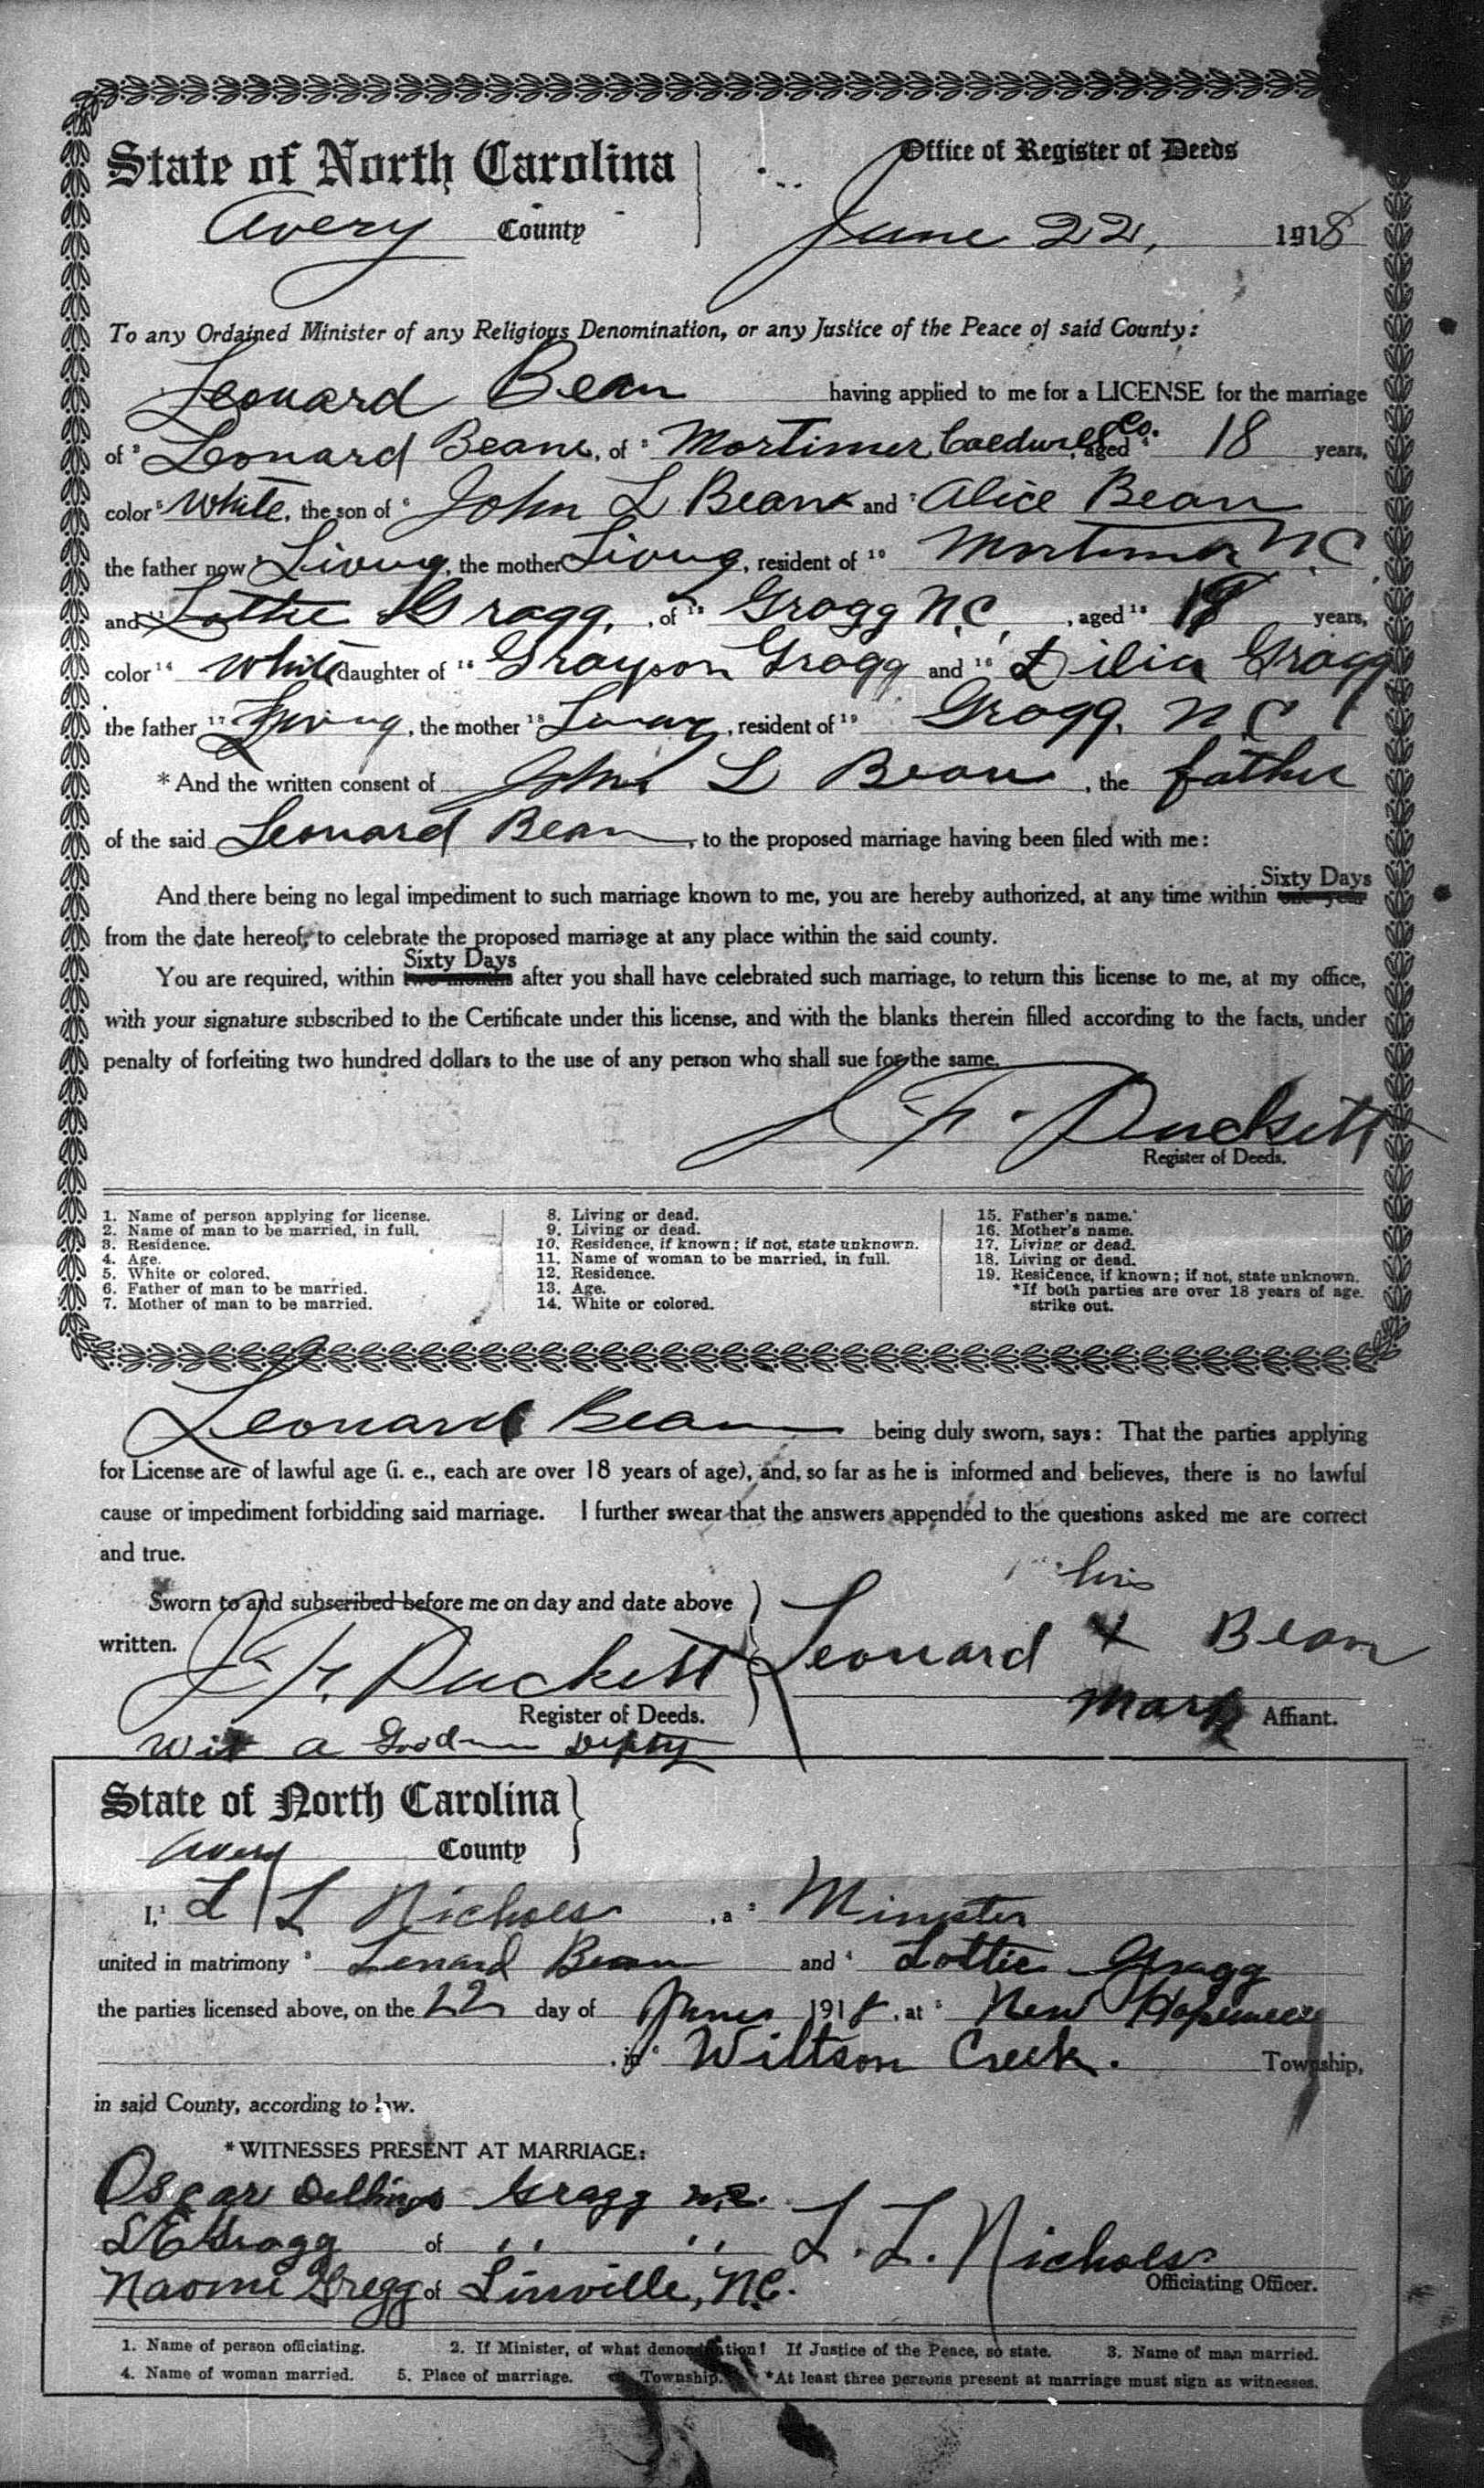 State of North Carolina
Office of Register of Deeds
Avery County
June 22, 1918
To any Ordained Minister of any Religious Denomination, or any Justice of the Peace of said County:
Leonard Bean having applied to me for a LICENSE for the marriage
of 2 Leonard Beane, of 3 Mortimer Caldwell Co. aged 4 18 years,
color 5 White, the son of 6 John L Bean and 7 Alice Bean
the father now 8 Living, the mother Living, resident of 10 Mortimer N C
and 11 Lottie Gragg, of 12 Gragg N.C., aged 13 18 years,
color 14 White daughter of 15 Grayson Gragg and 16 Gragg
the father 17 Living, the mother 18 Living, resident of 19 Gragg, N C
* And the written consent of John L Bean, the father
of the said Leonard Bean, to the proposed marriage having been filed with me:
Sixty Days
And there being no legal impediment to such marriage known to me, you are hereby authorized, at any time within one year
from the date hereof, to celebrate the proposed marriage at any place within the said county.
Sixty Days
You are required, within two months after you shall have celebrated such marriage, to return this license to me, at my office,
with your signature subscribed to the Certificate under this license, and with the blanks therein filled according to the facts, under
penalty of forfeiting two hundred dollars to the use of any person who shall sue for the same.
Duckett
Register of Deeds.
1. Name of person applying for license.
2. Name of man to be married, in full.
3. Residence.
4. Age.
5. White or colored.
6. Father of man to be married.
7. Mother of man to be married.
8. Living or dead.
9. Living or dead.
10. Residence, if known; if not, state unknown.
11. Name of woman to be married, in full.
12. Residence.
13. Age.
14. White or colored.
15. Father's name.
16. Mother's name.
17. Living or dead.
18. Living or dead.
19. Residence, if known; if not, state unknown.
*If both parties are over 18 years of age.
strike out.
Leonard Bean being duly sworn, says: That the parties applying
for License are of lawful age (i. e., each are over 18 years of age), and, so far as he is informed and believes, there is no lawful
cause or impediment forbidding said marriage. I further swear that the answers appended to the questions asked me are correct
and true.
Sworn to and subscribed before me on day and date above
written.
his
Leonard X Bean
mark Affiant.
Duckett
Register of Deeds.
Wit a Deputy
State of North Carolina
Avery County
I, 1 L L Nichols, a 2 Minister
united in matrimony 3 Lenard Bean and 4 Lottie Gragg
the parties licensed above, on the 22 day of June 1918, at 5 New Hopewell
in 6 Wiltson Creek. Township,
in said County, according to law.
* WITNESSES PRESENT AT MARRIAGE:
Oscar Dellinger Gragg N.C.
Gragg of " "
Naomi Gregg of Linville, N.C.
L. L. Nichols
Officiating Officer.
1. Name of person officiating. 2. If Minister, of what denomination? If Justice of the Peace, so state. 3. Name of man married.
4. Name of woman married. 5. Place of marriage. 6. Township. *At least three persons present at marriage must sign as witnesses.